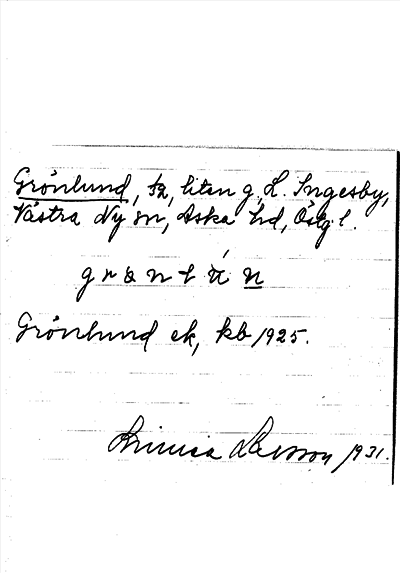 Grönlund, 1/32, liten g, L. Ingesby,
Västra Ny sn, Aska hd, Östg. l.
Grönlund ek, kb 1925.
Linnea Larsson 1931.